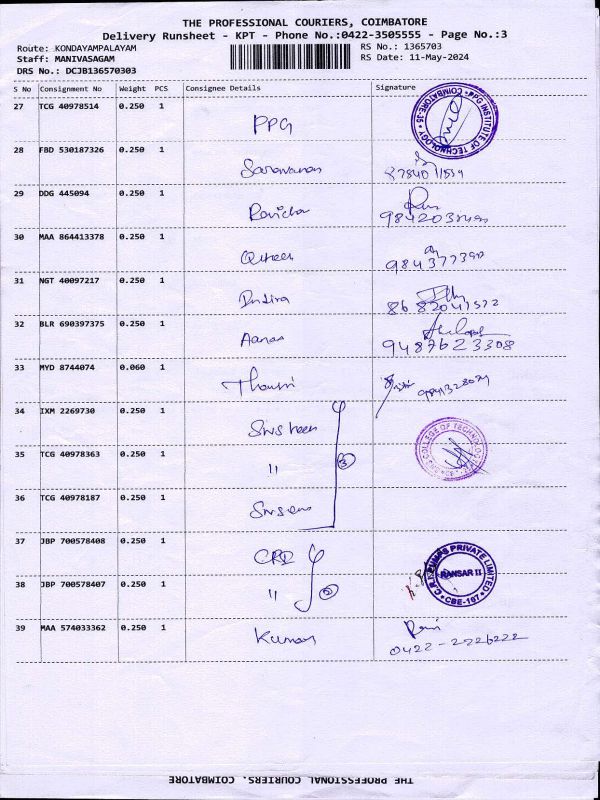 THE PROFESSIONAL COURIERS, COIMBATORE
Delivery Runsheet - KPT - Phone No.:0422-3505555 - Page No.:3
Route: KONDAYAMPALAYAM
RS No.: 1365703
Staff: MANIVASAGAM
RS Date: 11-May-2024
DRS No.: DCJB136570303
S No Consignment No Weight PCS Consignee Details Signature
27 TCG 40978514 0.250 1 PPG
PPG INSTITUTE OF TECHNOLOGY COIMBATORE-35
28 FBD 530187326 0.250 1 Saravanan
29 DDG 445094 0.250 1
30 MAA 864413378 0.250 1
31 NGT 40097217 0.250 1 Indira
32 BLR 690397375 0.250 1
9487623308
33 MYD 8744074 0.060 1
34 IXM 2269730 0.250 1
COLLEGE OF TECHNOLOGY
35 TCG 40978363 0.250 1 " 3
36 TCG 40978187 0.250 1
37 JBP 700578408 0.250 1 CRI
PUMPS PRIVATE LIMITED
RANSAR II
CBE-107
38 JBP 700578407 0.250 1 "
39 MAA 574033362 0.250 1 Kumar
0422-2226222
THE PROFESSIONAL COURIERS, COIMBATORE